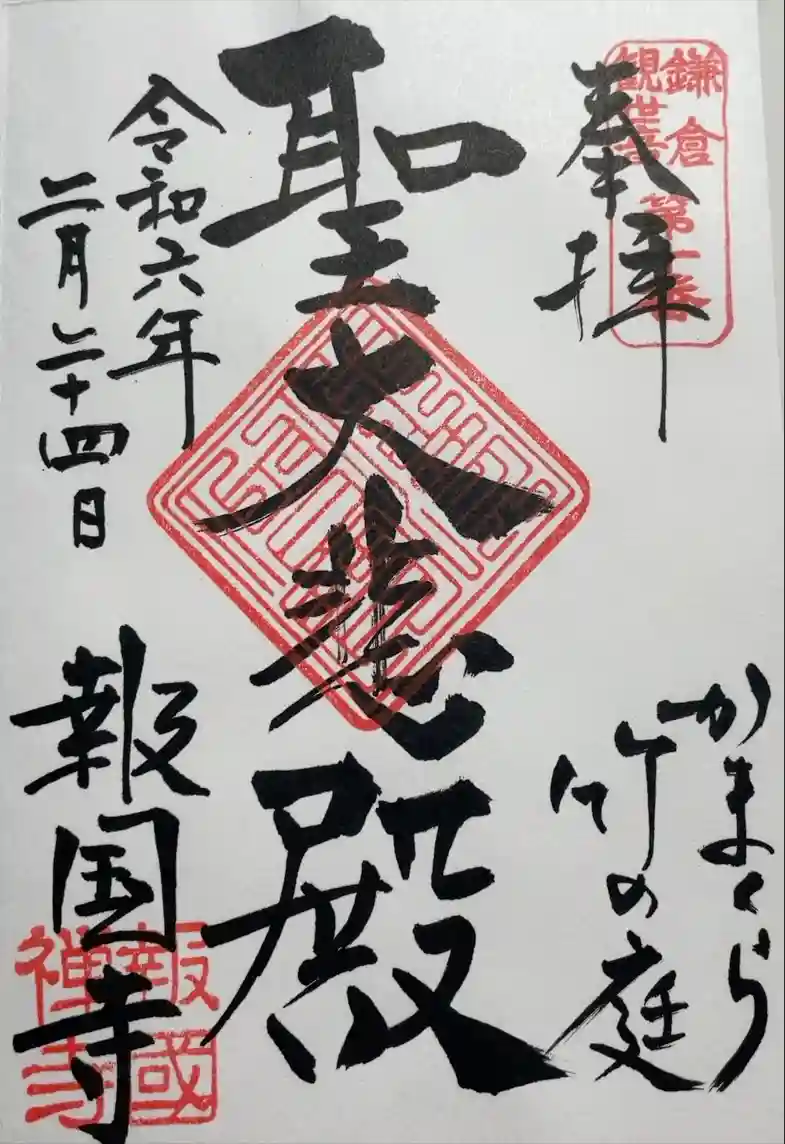 鎌倉
観世音
第十番
奉拝
かまくら
竹の庭
聖大悲殿
令和六年
二月二十四日
報国寺
報國
禅寺